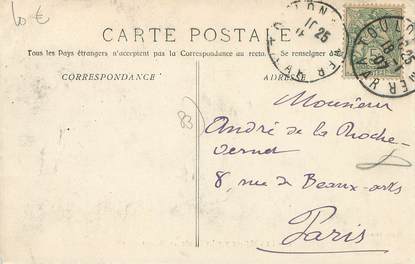 10 €
CARTE POSTALE
Tous les Pays étrangers n'acceptent pas la Correspondance au recto. Se renseigner
CORRESPONDANCE
ADRESSE
83
Monsieur
André de la Roche-
vernet
8, rue de Beaux-arts
Paris